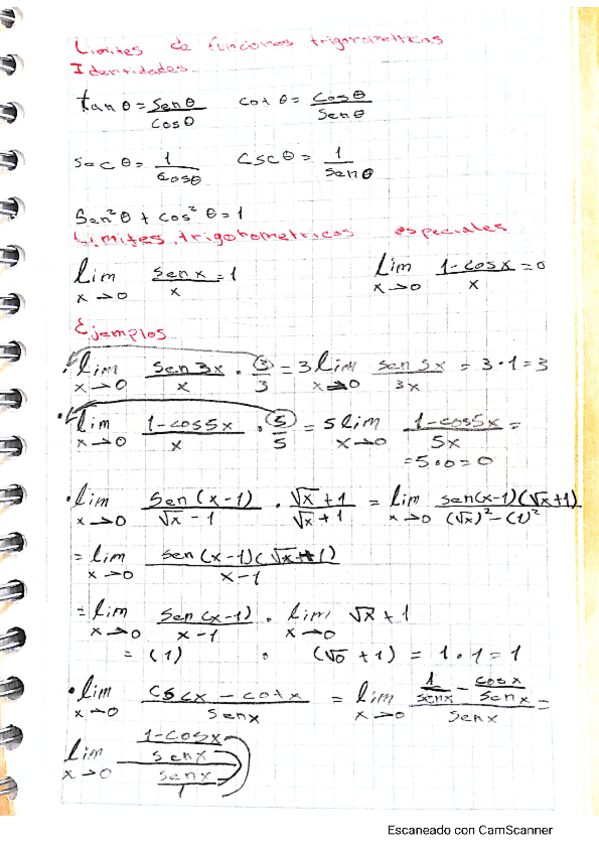 Limites de funciones trigonometricas
Identidades
tan θ = Senθ/Cosθ   cot θ = Cosθ/Senθ
Sec θ = 1/Cosθ   Cscθ = 1/Senθ
Sen²θ + Cos²θ = 1
Limites trigonometricos especiales
lim x→0 Senx/x = 1   lim x→0 1-cosx/x = 0
Ejemplos
• lim x→0 Sen3x/x · 3/3 = 3 lim x→0 Sen3x/3x = 3·1 = 3
• lim x→0 1-cos5x/x · 5/5 = 5 lim x→0 1-cos5x/5x =
= 5·0 = 0
• lim x→0 Sen(x-1)/√x - 1 · √x + 1/√x + 1 = lim x→0 Sen(x-1)(√x+1)/(√x)² - (1)²
= lim x→0 Sen(x-1)(√x+1)/x-1
= lim x→0 Sen(x-1)/x-1 · lim x→0 √x + 1
= (1) · (√0 + 1) = 1·1 = 1
• lim x→0 Cscx - cotx/Senx = lim x→0 1/Senx - Cosx/Senx/Senx =
lim x→0 1-Cosx/Senx/Senx/1
Escaneado con CamScanner